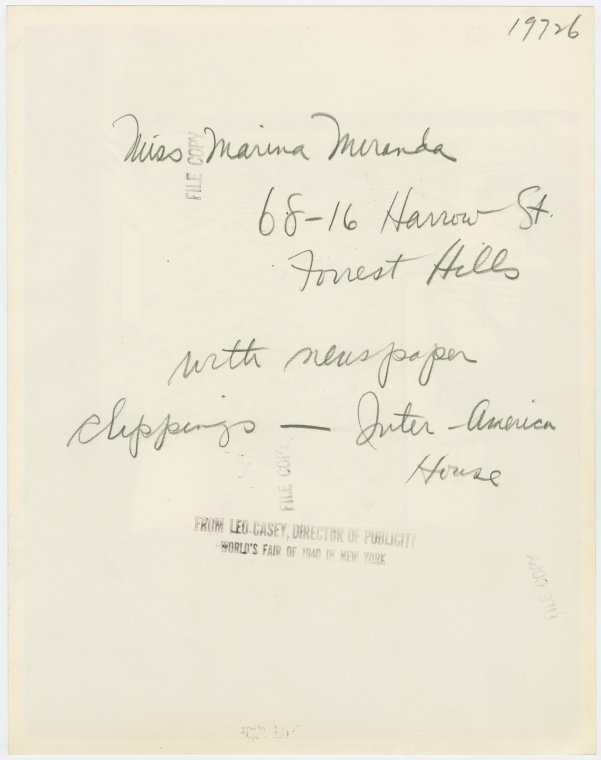 19726
Miss Marina Miranda
FILE COPY
68-16 Harrow St.
Forrest Hills
with newspaper
clippings — Inter-America
House
FILE COPY
FROM LEO CASEY, DIRECTOR OF PUBLICITY
WORLD'S FAIR OF 1940 IN NEW YORK
FILE COPY